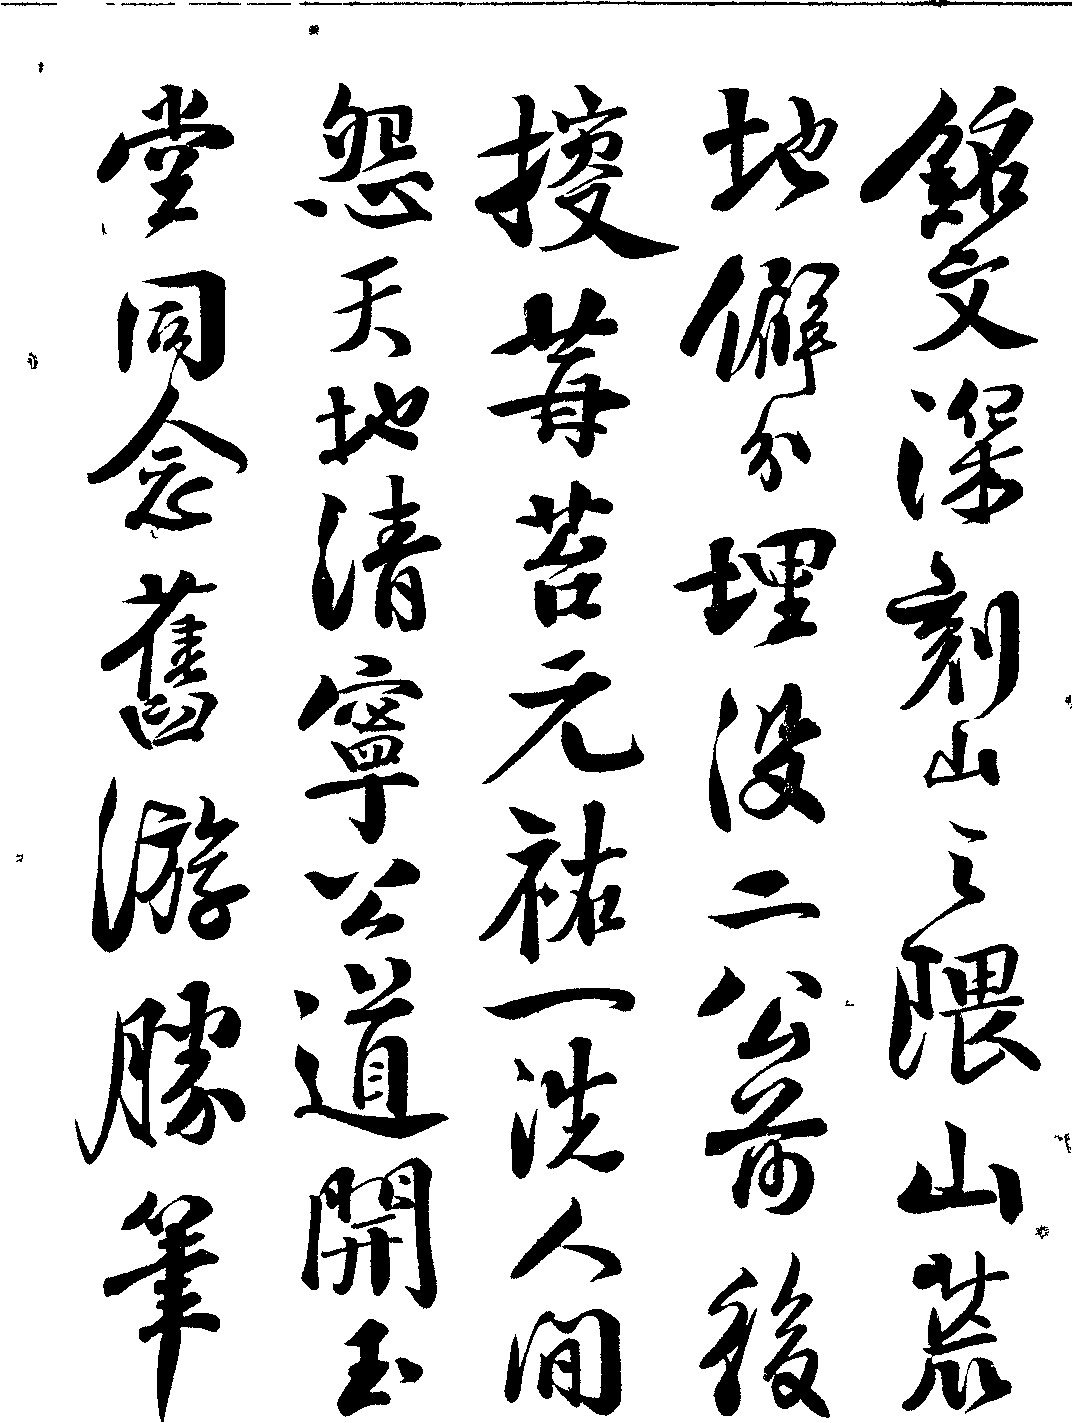 銘文深刻山之隈山荒
地僻分埋没二公前後
搜莓苔元祐一洗人間
怨天地清寧公道開玉
堂同念舊游勝筆